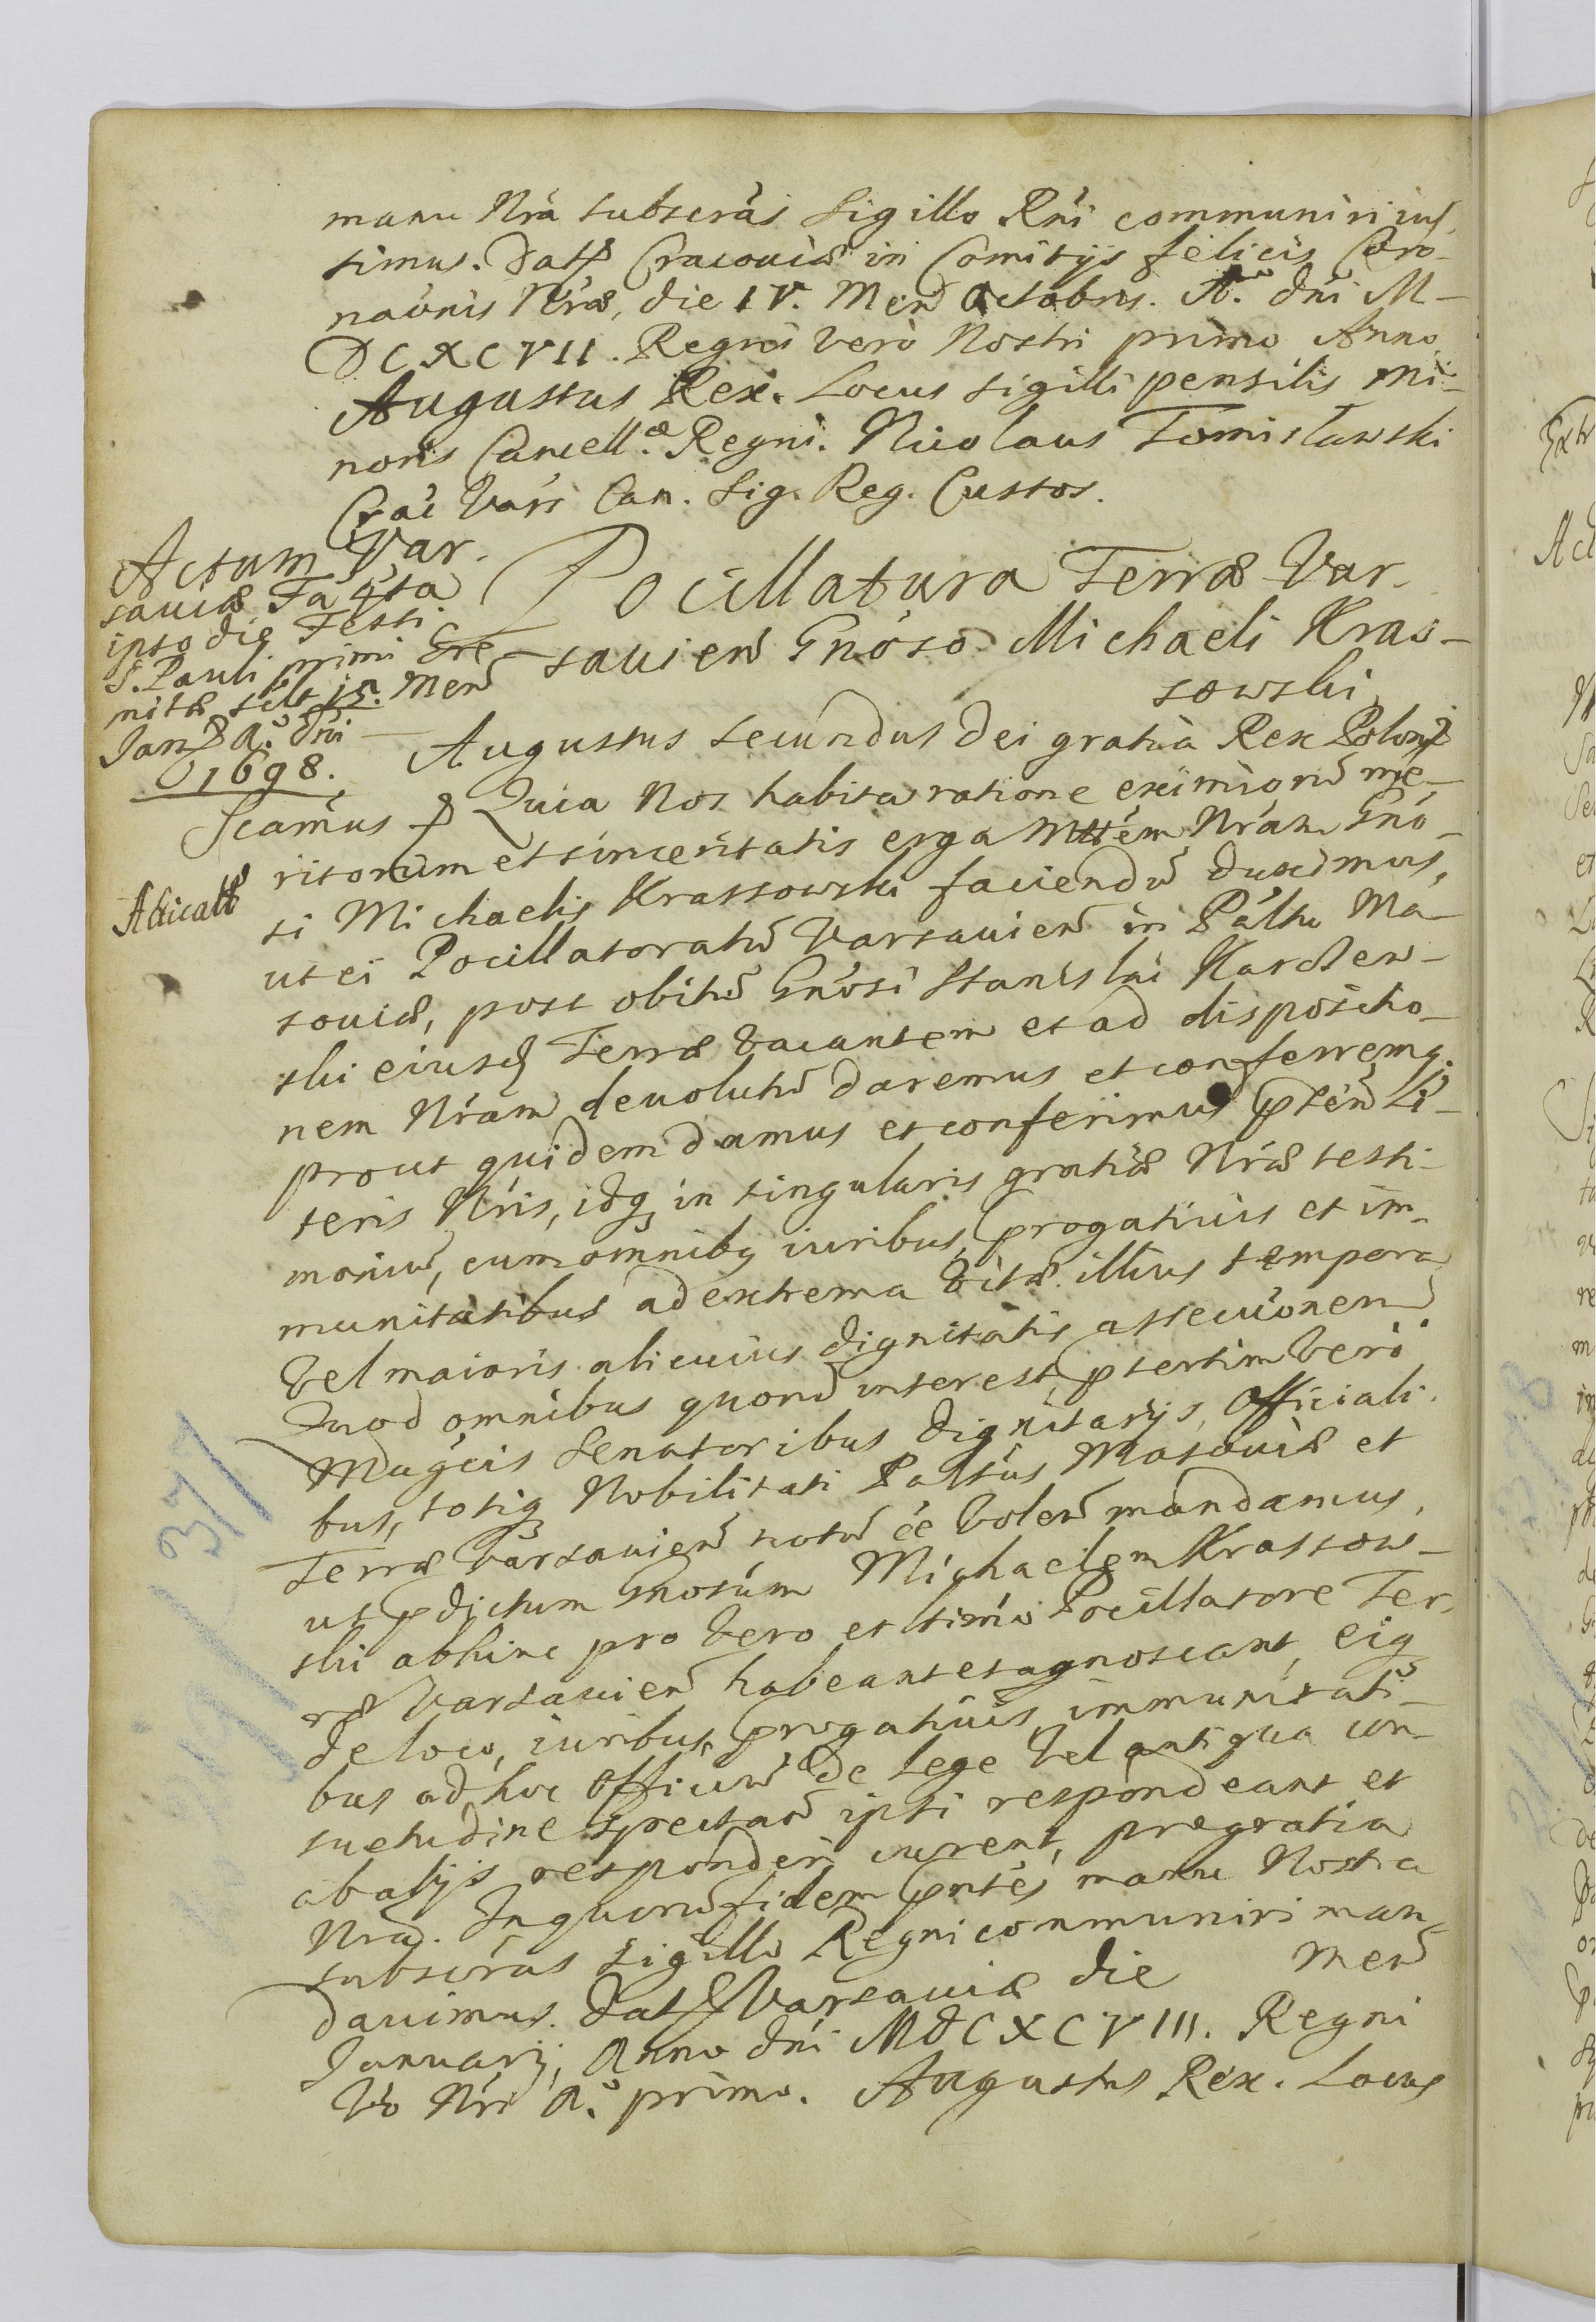 manu Nrá subscrás Sigillo Rńi communiri ius
simus. Datt Cracoviæ in Comitÿs felicis Coro-
naónis Nræ, die IV. Men̄ Octobris. A.º dńi M-
DCXCVII. Regni vero Nostri primo Anno
Augustus Rex. Locus sigilli pensilis mi-
noris Cancell.æ Regni. Nicolaus Tomisławski
Crać Várś Can. Sig. Reg. Custos.
Actum Var-
saviæ Fá 4ta
ipso die Festi
S. Pauli primi Ere
mitæ scilt 15. Men̄
Jan̄ A.º dńi
1698.
Pocillatura Terræ Var-
savien̄ Gnóso Michaeli Kras-
sowski
Augustus Secundus Dei gratia Rex Polon̄
Scámus Quia Nos habita ratione eximiorū me-
ritorum et sinceritatis erga Mttém Nrám Gnó-
si Michaelis Krassowski faciendū duximus,
ut ei Pocillatoratū Varsavien̄ in Páltu Ma-
soviæ, post obitū Gnósi Stanislai Karczew-
ski eiusđ Terræ vacantem et ad dispositio-
nem Nrám devolutū daremus et conferremq.
prout quidem damus et conferimus pńtén̄ Li-
teris Nrís, idq in singularis gratiæ Nræ testi-
moniū, cum omnibq iuribus, progativis et im-
munitatibus ad extrema vitæ illius tempora
vel maioris alicuius dignitatis assecuonem
Quod omnibus quorū interest, psertim vero
Magcis Senatoribus Dignitarÿs, Officiali-
bus, totiq Nobilitati Paltus Masoviæ et
Terræ Varsavien̄ notū éé volen̄ mandamus,
ut pdictum Gnosúm Michaelem Krassow-
ski abhinc pro vero et ltimo Pocillatore Ter-
ræ Varsavien̄ habeant et agnoscant, eiq
de loco, iuribus, progativis, immunitati-
bus ad hoc Officiū de lege vel antiqua con-
suetudine spectan̄ ipsi respondeant et
ab alÿs responderi curent, pro gratia
Nra. In quorū fidem pńtés manu Nostra
subscrás Sigillo Regni communiri man-
davimus. Datt Varsaviæ die Men̄
Januarÿ, Anno dńi MDCXCVIII. Regni
vo Nrí A.º primo. Augustus Rex. Locus